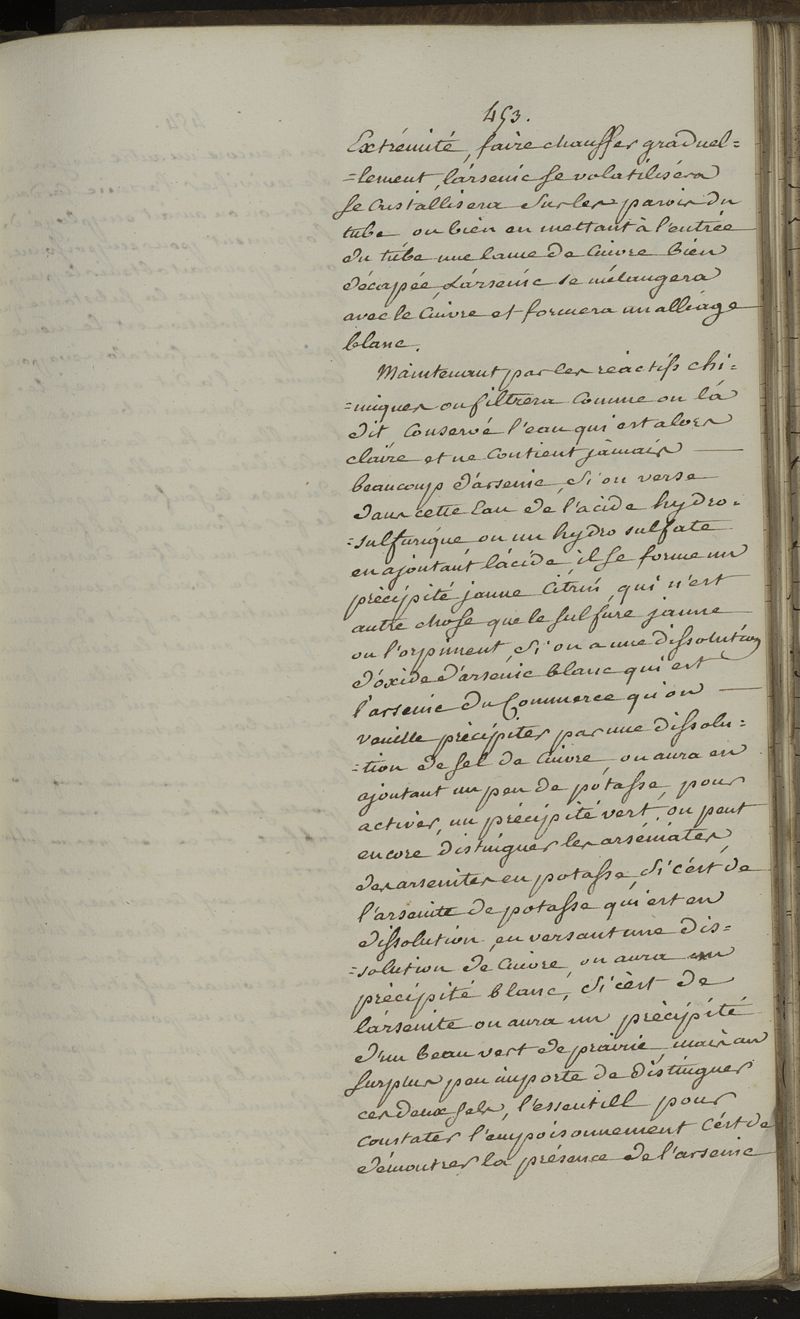 453.
Extrémité, faire chauffer graduel=
=lement, l'arsenic se volatilisera
se cristallisera sur les parois du
tube ou bien en mettant à l'entrée
du tube une lame de cuivre bien
décapée, L'arsenic se mélangera
avec le cuivre et formera un alliage
blanc.
Maintenant par les réactifs chi=
=miques on filtrera comme on l'a
dit, conservé l'eau qui est alors
claire et ne contient jamais —
beaucoup d'arsenic, si on verse
dans cette eau de l'acide hydro=
=sulfurique ou un hydro sulfate
en ajoutant l'acide il se forme un
précipité jaune citrin, qui n'est
autre chose que le sulfure jaune
ou l'orpiment, si on a une dissolution
d'oxide d'arsenic blanc qui est
l'arsenic du Commerce qu'on —
veuille précipiter par une dissolu=
=tion de sel de cuivre, on aura en
ajoutant un peu de potasse, pour
activer, un précipité vert, on peut
encore distinguer les arséniates
des arsenites en potasse, si c'est de
l'arsenite de potasse qui est en
dissolution, en versant une dis=
=solution de cuivre, on aura un
précipité blanc, si c'est de
l'arsenite on aura un précipité
d'un beau vert de prairie, mais au
surplus peu importe de distinguer
ces deux sels, l'essentill pour
constater l'empoisonnement c'est de
démontrer la présence de l'arsenic